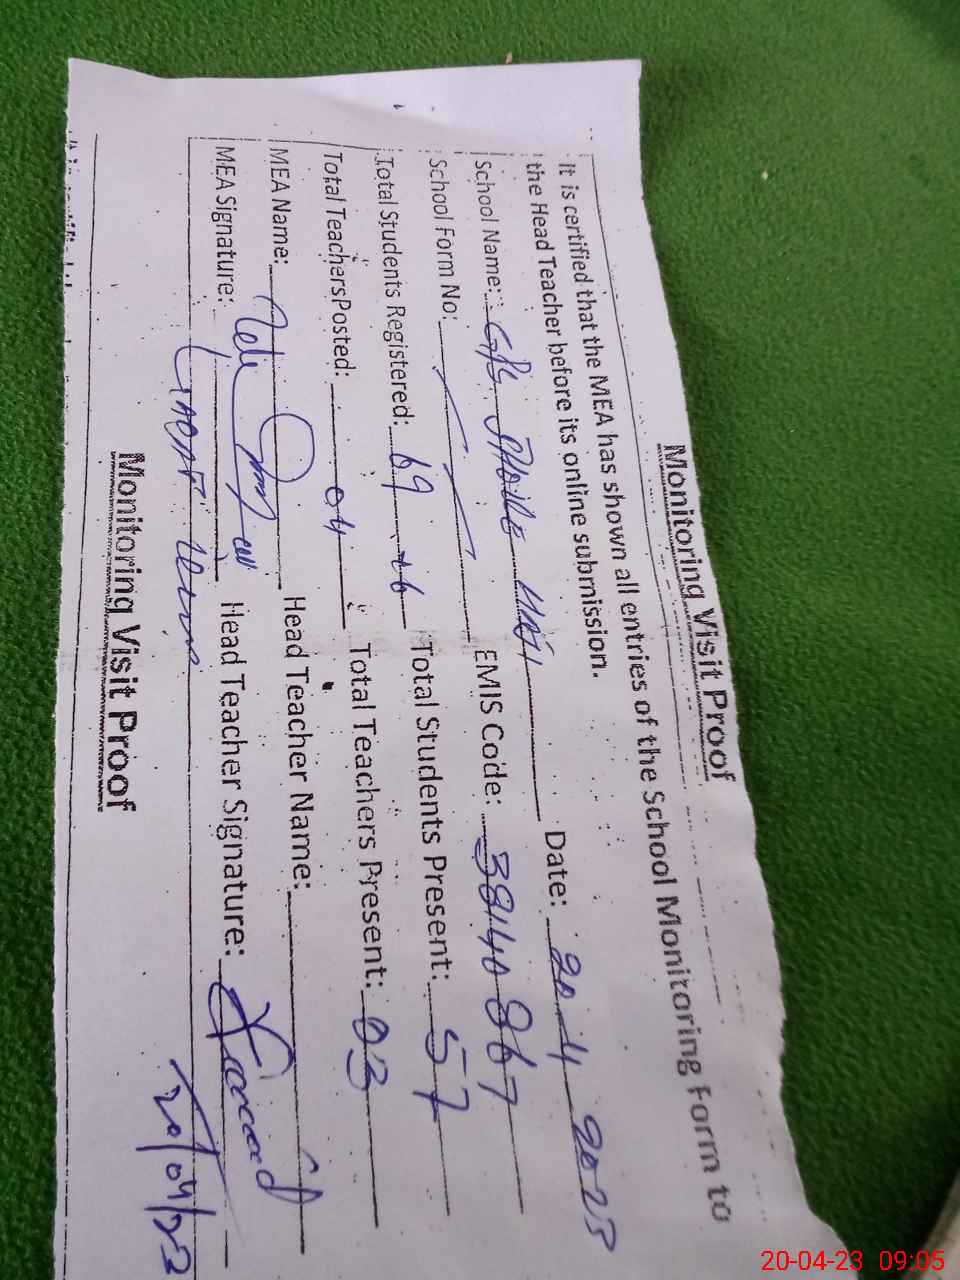 Monitoring Visit Proof
It is certified that the MEA has shown all entries of the School Monitoring Form to
the Head Teacher before its online submission.
Date: 20 4 2023
School Name: GPS
School Form No: EMIS Code: 38140867
Total Students Registered: 69 Total Students Present: 57
Total TeachersPosted: 04 Total Teachers Present: 03
MEA Name: Head Teacher Name:
MEA Signature: Head Teacher Signature:
20/04/23
Monitoring Visit Proof
20-04-23 09:05